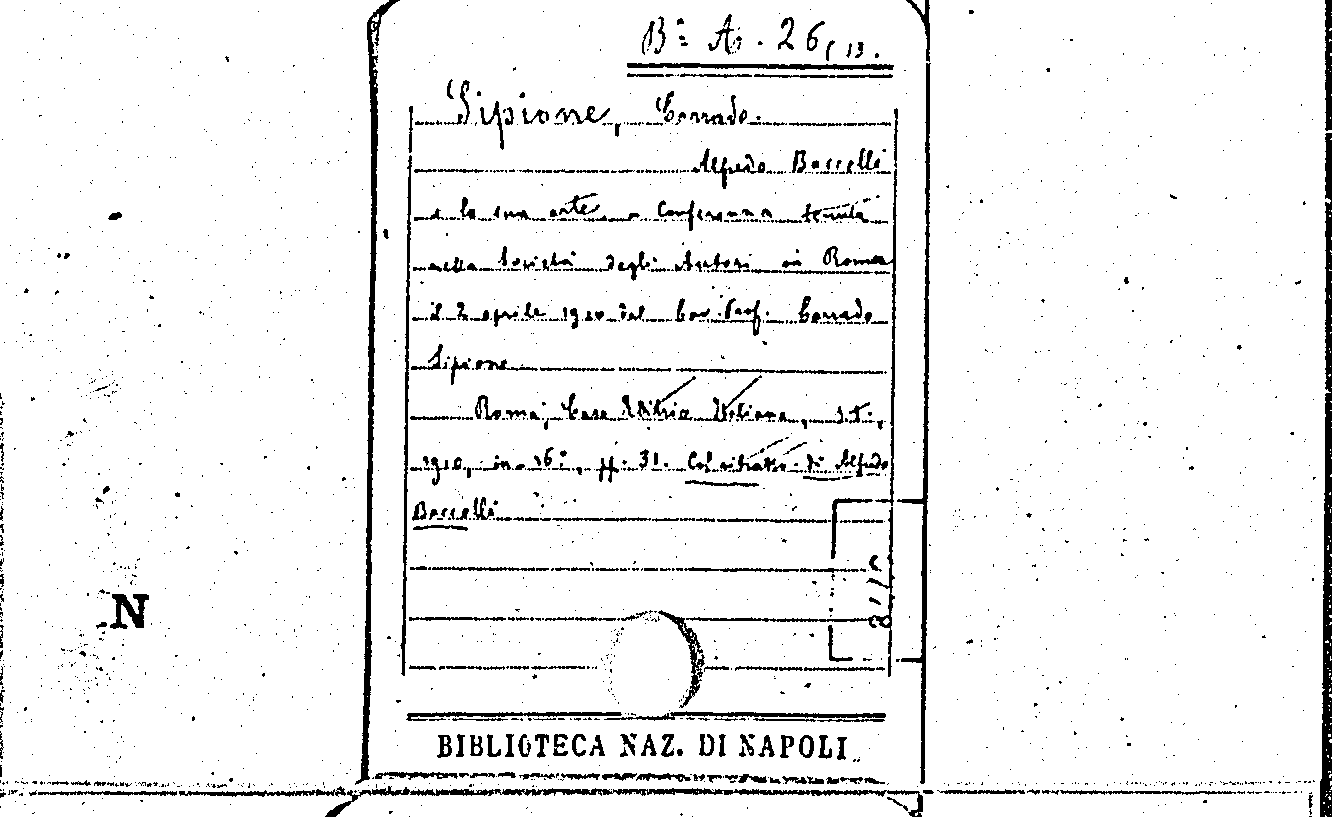 Bª A. 26, 13.
Sipione, Corrado.
Alfredo Baccelli
e la sua arte. Conferenza tenuta
nella Società degli Autori in Roma
il 2 aprile 1910 dal Cav. Prof. Corrado
Sipione
Roma, Casa Editrice Italiana, s.t.,
1910, in-16º, pp. 31. Col ritratto di Alfredo
Baccelli
N
BIBLIOTECA NAZ. DI NAPOLI